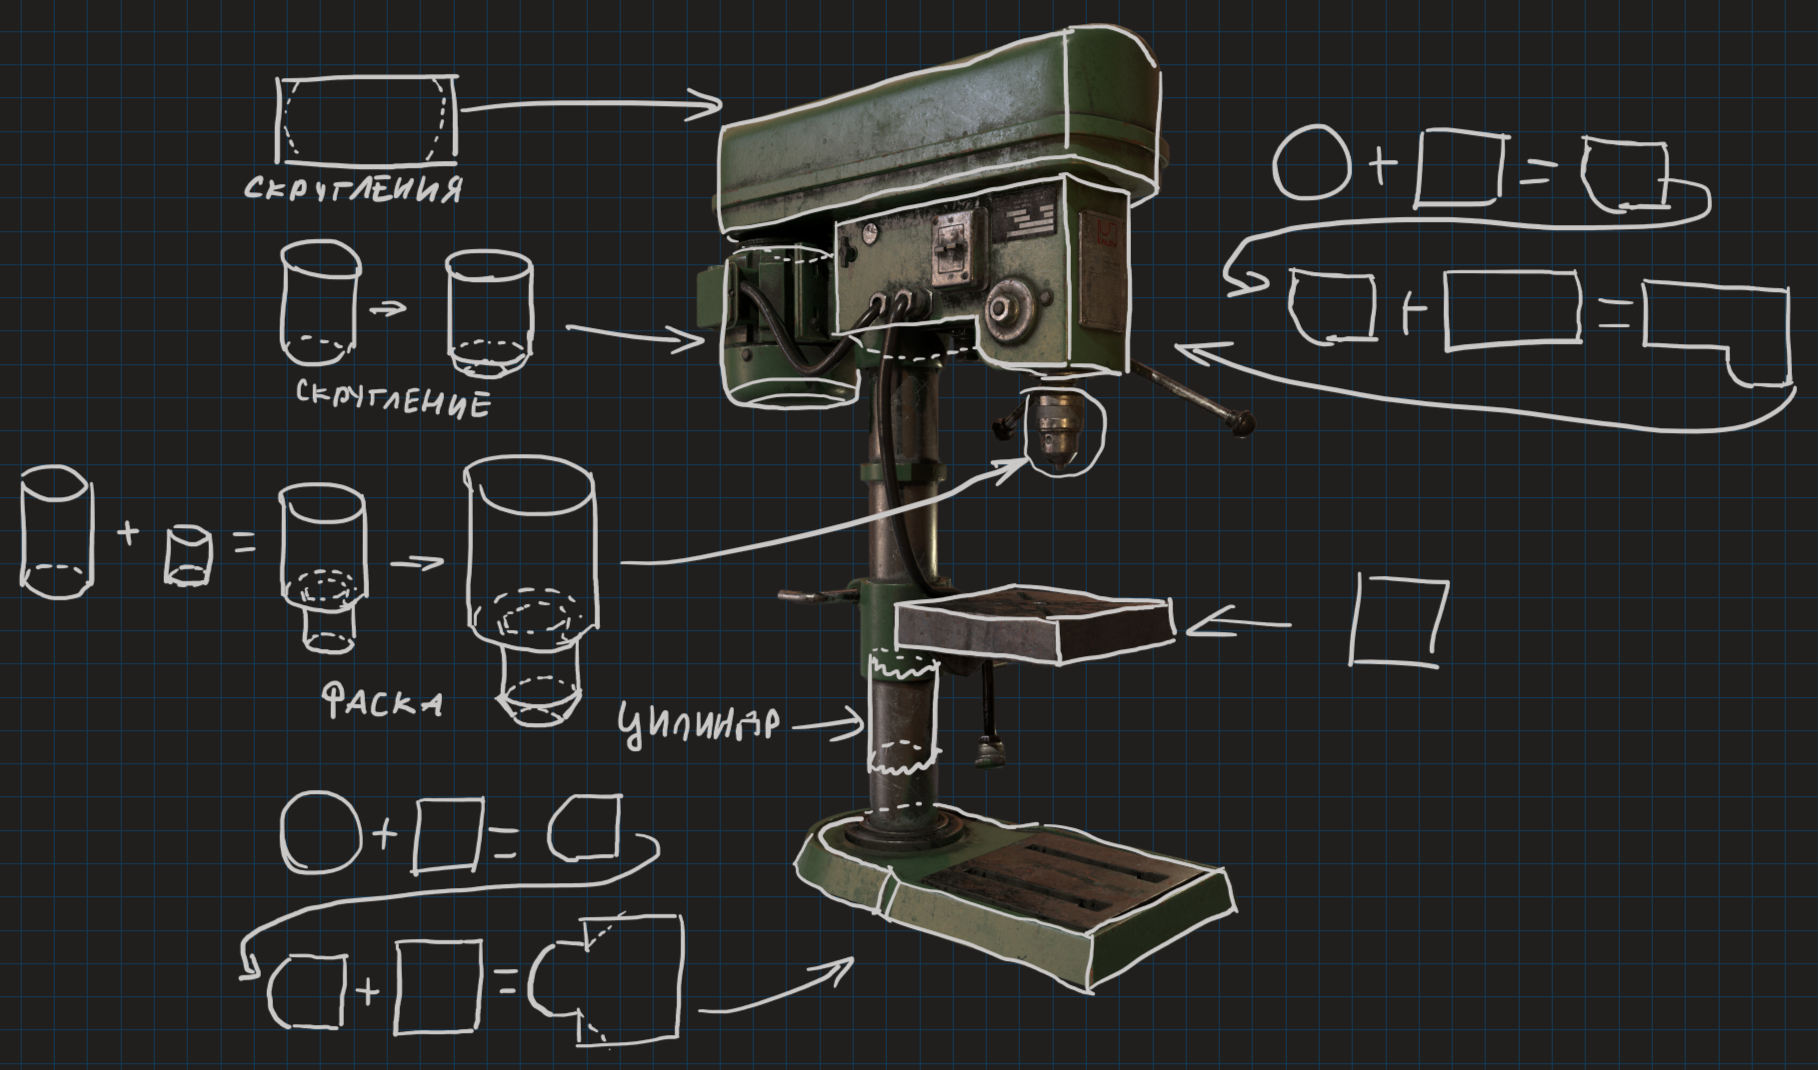 СКРУГЛЕНИЯ
СКРУГЛЕНИЕ
ФАСКА
ЦИЛИНДР